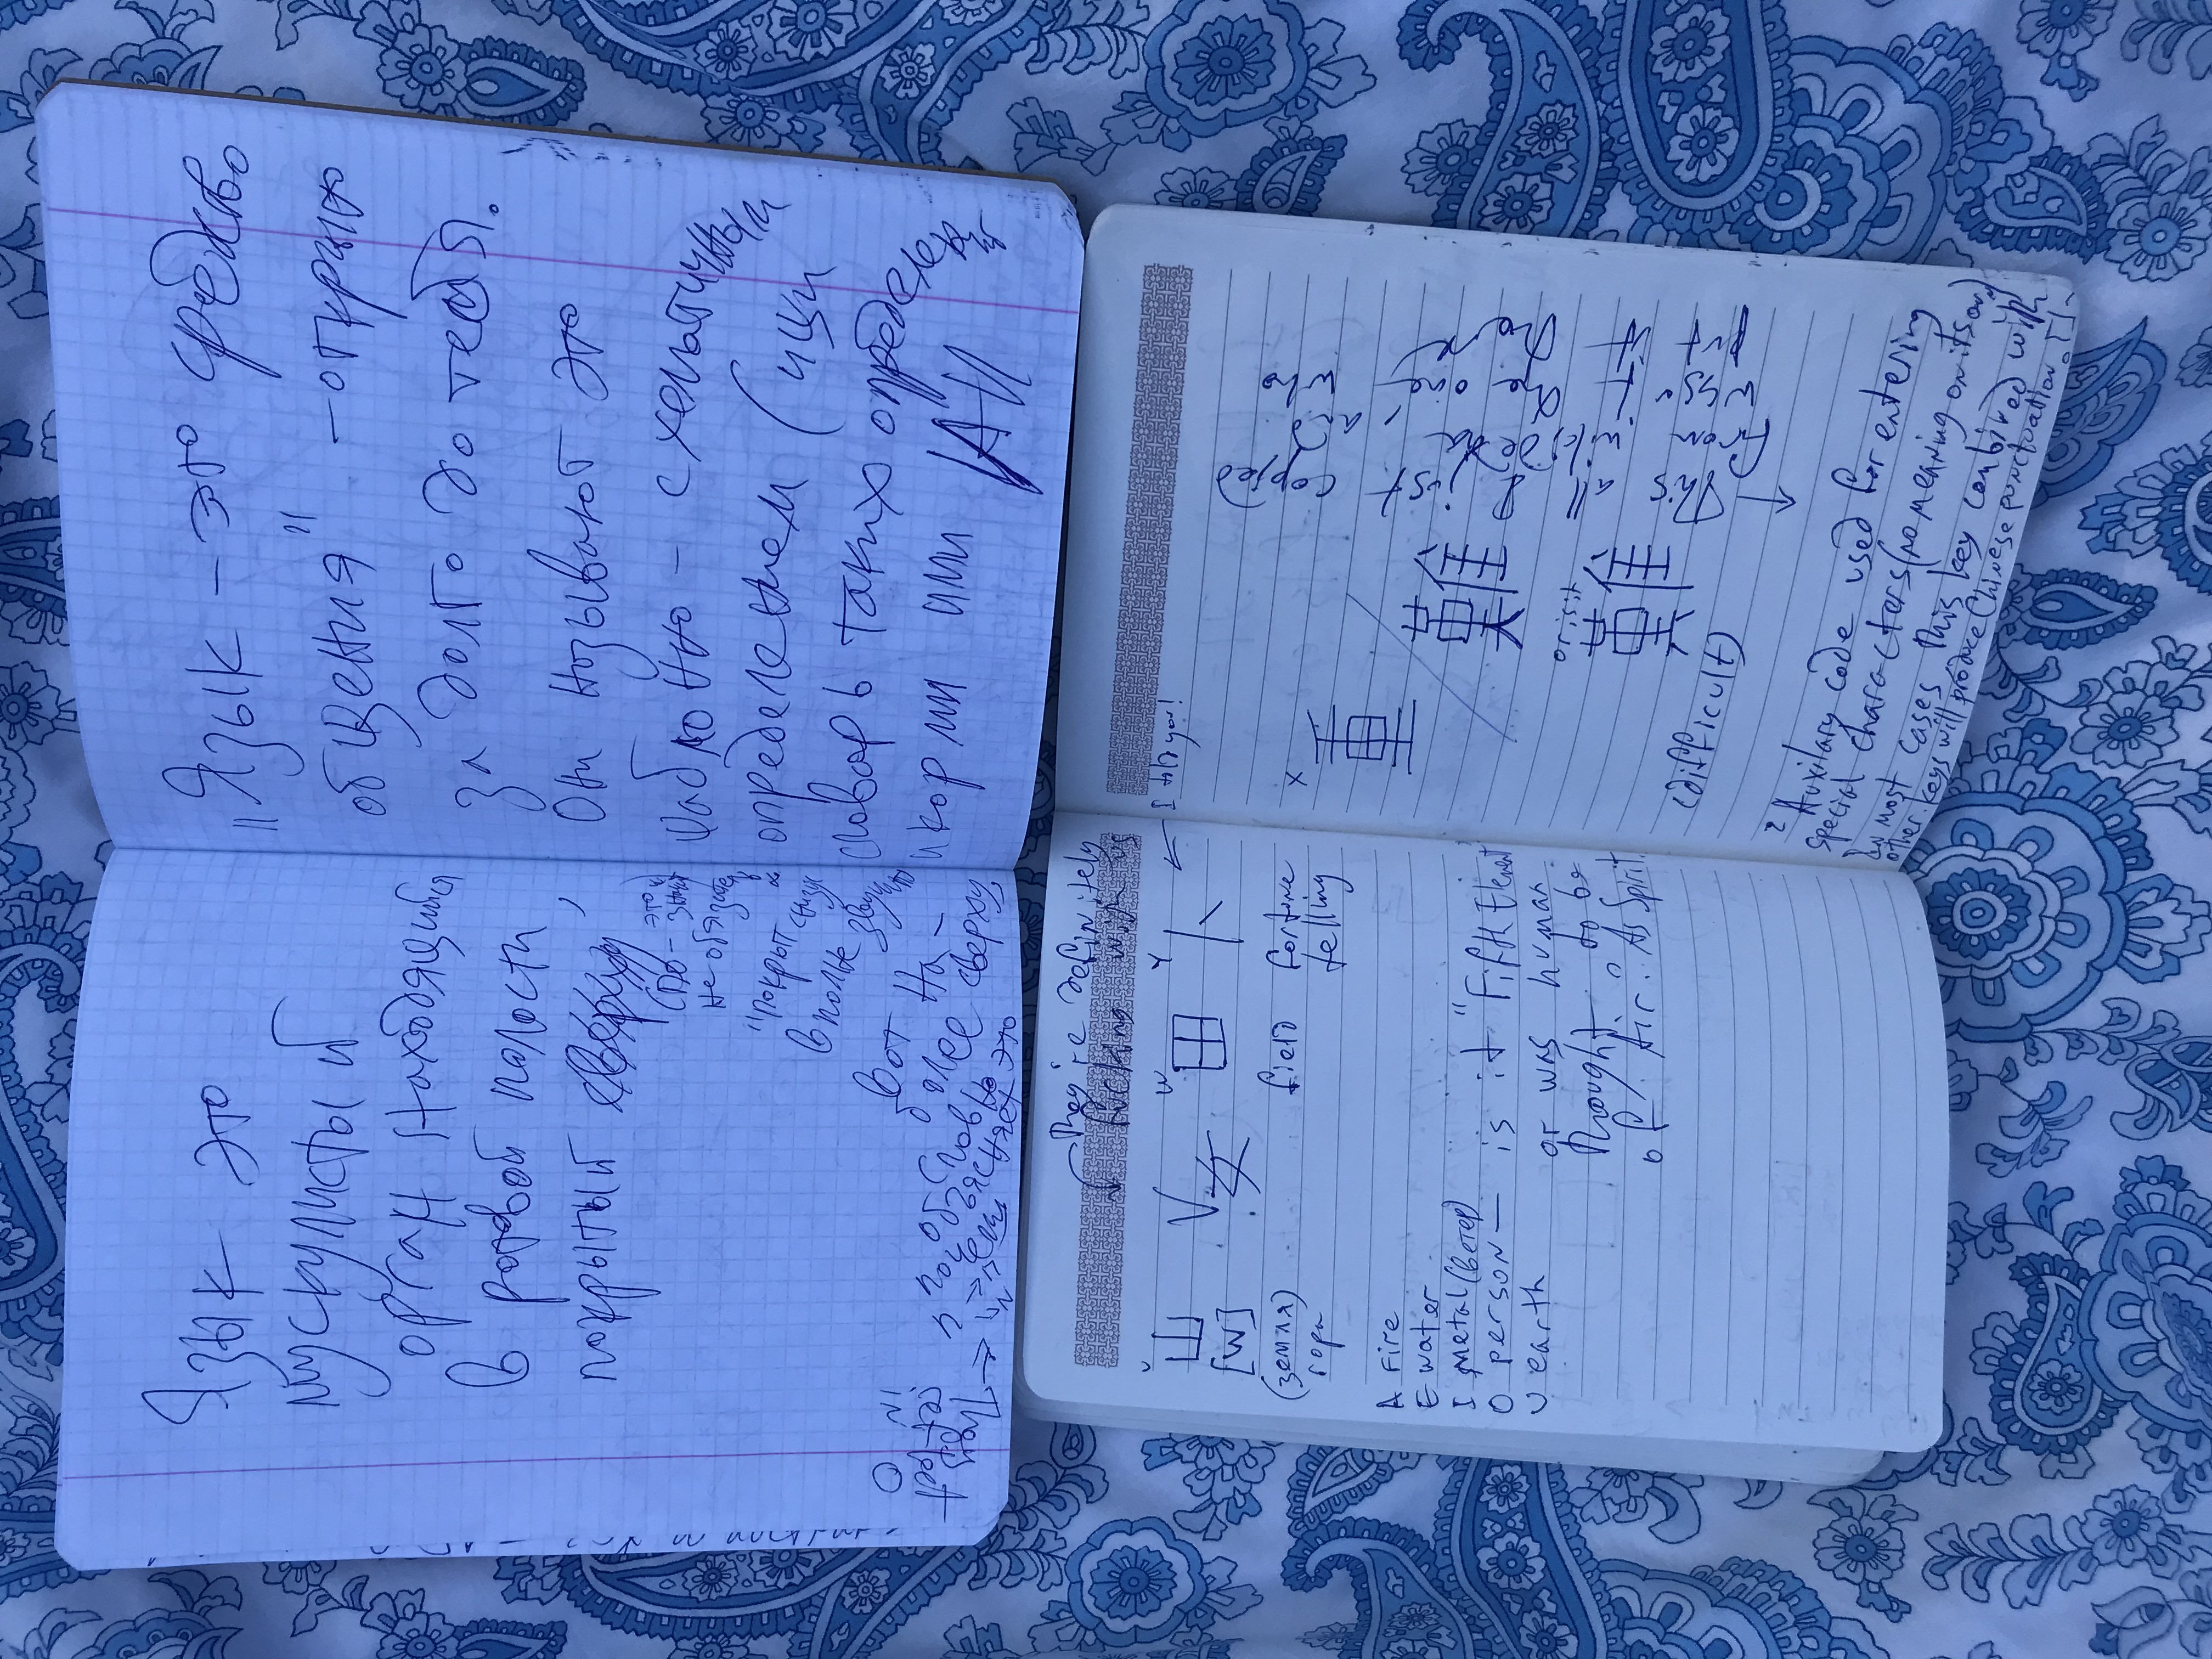 Язык это
мускулистый
орган находящийся
в ротовой полости,
покрытый сверху
это ж
(по- значит
не обязательно
"покрыт снизу
вполне звучит
Вот
более На-
сверху,
They
reflect
in
O
"Язык – это средство
общения" – открыто
за долго до тебя.
Они называют это
шаблонно – схематичным
определением (ищи
словарь таких определений
и корми ими ИИ
They're definitely
fucking with us
U V W Y
山 女 田 卜
[W]
(земля) field fortune
гора telling
A Fire
E water
I metal (ветер)
O person — is it "Fifth Element
U earth or was human
thought to be
of Air? As Spirit.
I told you!
X
重
難
or is it
難
(difficult)
This all I just copied
from wikipedia, and
wysu't the one who
put it there
Z Auxilary code used for entering
special characters (no meaning on its own)
In most cases, this key combined with
other keys will produce Chinese punctuation.